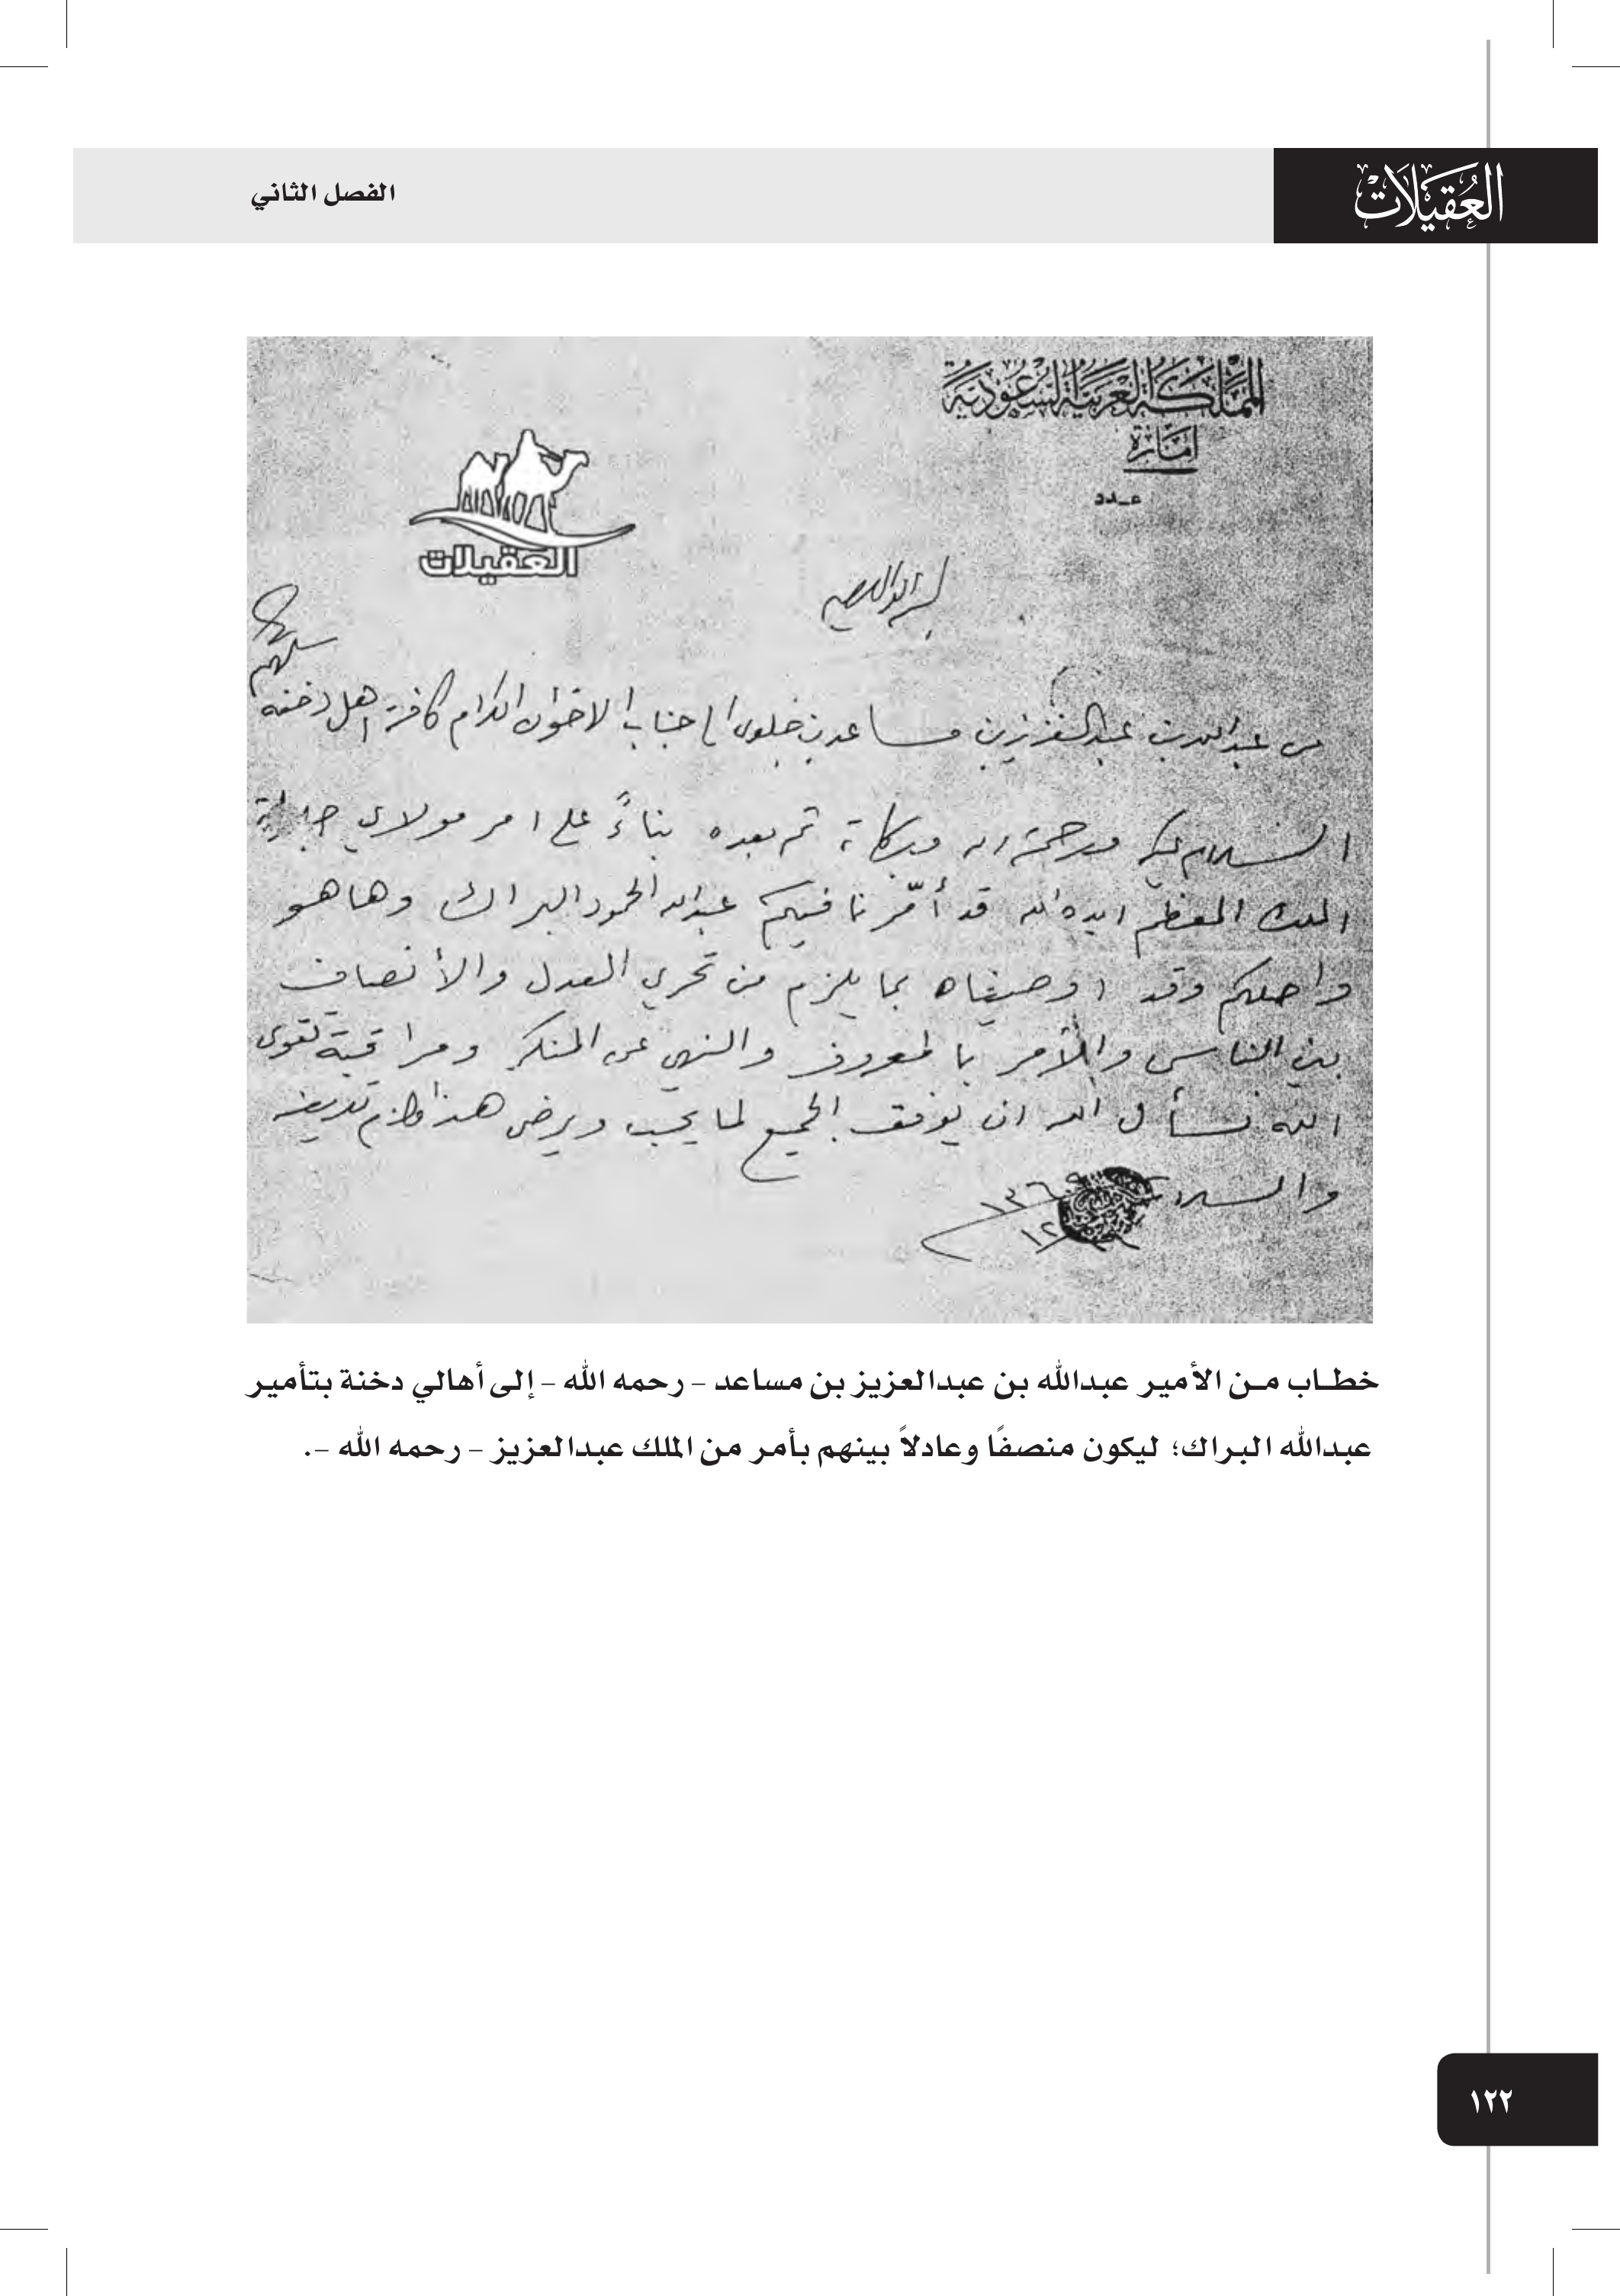 العقيلات
الفصل الثاني
المملكة العربية السعودية
امارة
عدد
العقيلات
من عبدالله بن عبدالعزيز بن مساعد بن جلوى الى جناب الاخوان الكرام كافة اهل دخنه
سلمهم
السلام عليكم ورحمة الله وبركاته ثم بعده بناءً على امر مولاي جلالة
الملك المعظم ايده الله قد أمّرنا فيكم عبدالله الحمود البراك وها هو
واصلكم وقد اوصيناه بما يلزم من تحري العدل والأنصاف
بين الناس والأمر بالمعروف والنهي عن المنكر ومراقبة تقوى
الله نسأل الله ان يوفق الجميع لما يحب ويرضى هذا مالزم تعريفه
والسلام
خطاب من الأمير عبدالله بن عبدالعزيز بن مساعد – رحمه الله – إلى أهالي دخنة بتأمير
عبدالله البراك؛ ليكون منصفًا وعادلاً بينهم بأمر من الملك عبدالعزيز – رحمه الله –.
١٢٢